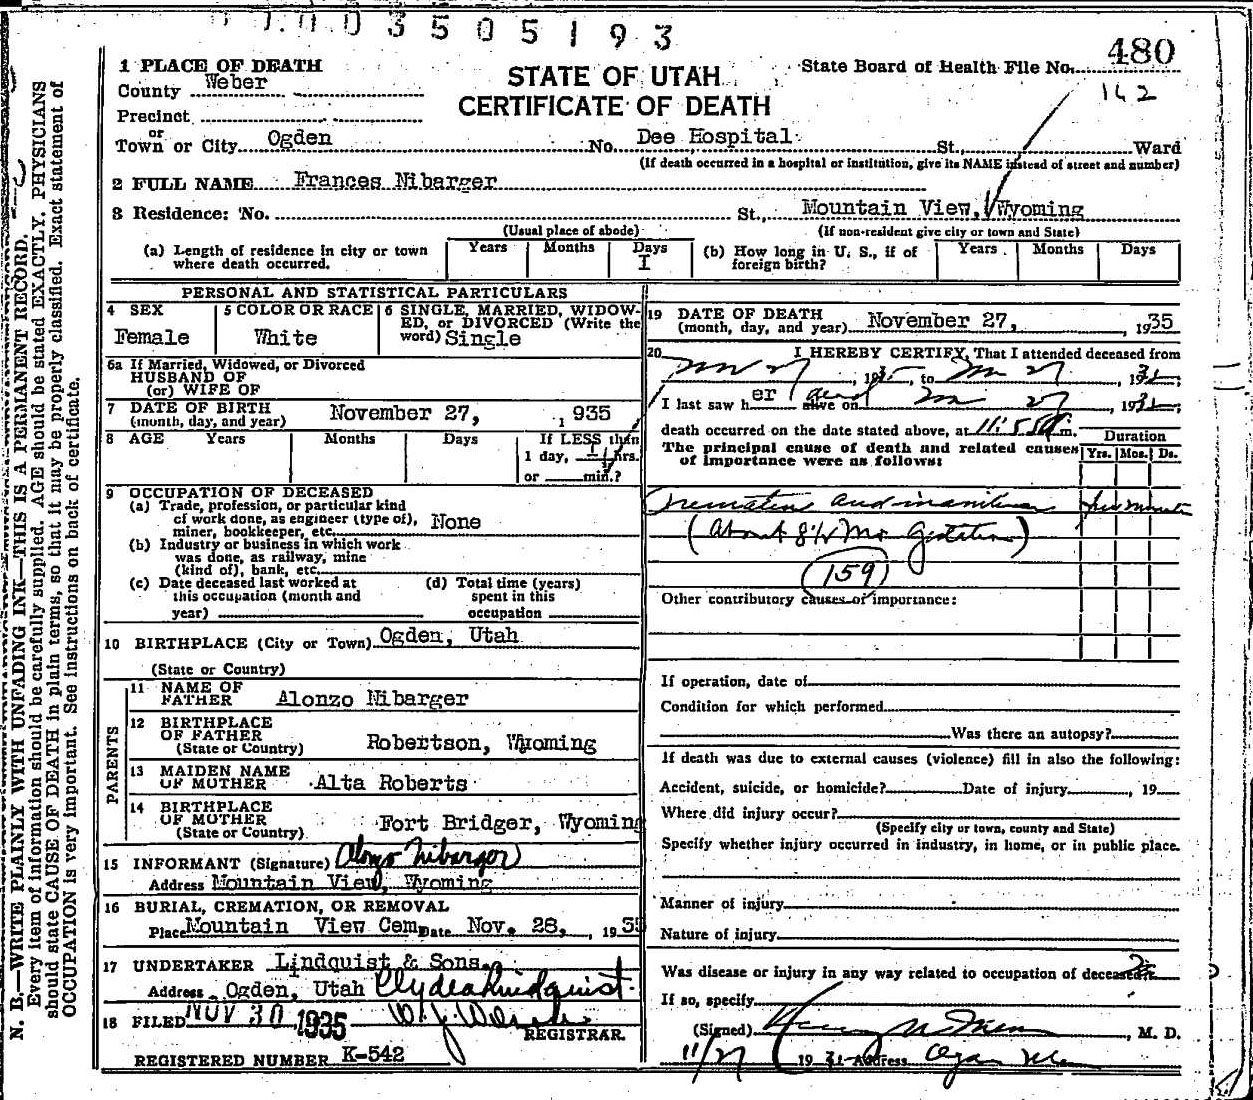 0003505193
480
1 PLACE OF DEATH
STATE OF UTAH
State Board of Health File No.
County Weber
CERTIFICATE OF DEATH
142
Precinct
or
Town or City Ogden No. Dee Hospital St., Ward
(If death occurred in a hospital or institution, give its NAME instead of street and number)
2 FULL NAME Frances Nibarger
3 Residence: No. St., Mountain View, Wyoming
(Usual place of abode) (If non-resident give city or town and State)
(a) Length of residence in city or town where death occurred. Years Months Days 1
(b) How long in U. S., if of foreign birth? Years Months Days
PERSONAL AND STATISTICAL PARTICULARS
4 SEX Female
5 COLOR OR RACE White
6 SINGLE, MARRIED, WIDOWED, or DIVORCED (Write the word) Single
6a If Married, Widowed, or Divorced
HUSBAND OF
(or) WIFE OF
7 DATE OF BIRTH November 27, 1935
(month, day, and year)
8 AGE Years Months Days If LESS than
1 day, hrs.
or min.?
9 OCCUPATION OF DECEASED
(a) Trade, profession, or particular kind
of work done, as engineer (type of), None
miner, bookkeeper, etc.
(b) Industry or business in which work
was done, as railway, mine
(kind of), bank, etc.
(c) Date deceased last worked at
this occupation (month and
year)
(d) Total time (years)
spent in this
occupation
10 BIRTHPLACE (City or Town) Ogden, Utah
(State or Country)
PARENTS
11 NAME OF
FATHER Alonzo Nibarger
12 BIRTHPLACE
OF FATHER
(State or Country) Robertson, Wyoming
13 MAIDEN NAME
OF MOTHER Alta Roberts
14 BIRTHPLACE
OF MOTHER
(State or Country) Fort Bridger, Wyoming
15 INFORMANT (Signature) Alonzo Nibarger
Address Mountain View, Wyoming
16 BURIAL, CREMATION, OR REMOVAL
Place Mountain View Cem. Date Nov. 28, 1935
17 UNDERTAKER Lindquist & Sons.
Address Ogden, Utah Clyde Lindquist
18 FILED NOV 30 1935
REGISTRAR.
REGISTERED NUMBER K-542
19 DATE OF DEATH
(month, day, and year) November 27, 1935
20 I HEREBY CERTIFY, That I attended deceased from
Nov 27, 1935, to Nov 27, 1935;
I last saw her alive on Nov 27, 1935;
death occurred on the date stated above, at 11:55 m.
The principal cause of death and related causes
of importance were as follows:
Duration
Yrs. Mos. Ds.
few minutes
(About 8½ Mo Gestation)
159
Other contributory causes of importance:
If operation, date of
Condition for which performed
Was there an autopsy?
If death was due to external causes (violence) fill in also the following:
Accident, suicide, or homicide? Date of injury , 19
Where did injury occur?
(Specify city or town, county and State)
Specify whether injury occurred in industry, in home, or in public place.
Manner of injury
Nature of injury
Was disease or injury in any way related to occupation of deceased?
If so, specify
(Signed) , M. D.
11/27 19 Address Ogden Utah
N. B.—WRITE PLAINLY WITH UNFADING INK—THIS IS A PERMANENT RECORD.
Every item of information should be carefully supplied. AGE should be stated EXACTLY. PHYSICIANS
should state CAUSE OF DEATH in plain terms, so that it may be properly classified. Exact statement of
OCCUPATION is very important. See instructions on back of certificate.